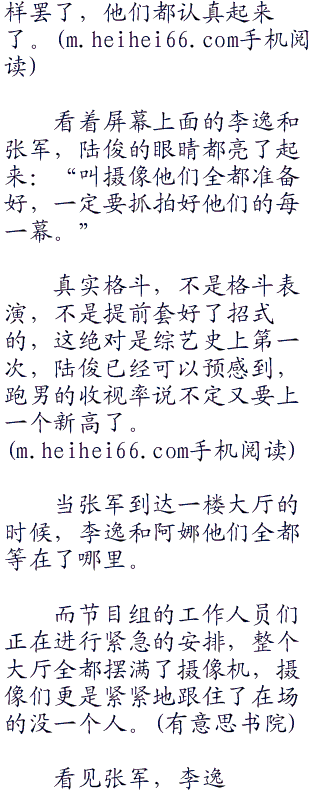 样罢了，他们都认真起来
了。(m.heihei66.com手机阅
读)
看着屏幕上面的李逸和
张军，陆俊的眼睛都亮了起
来：“叫摄像他们全都准备
好，一定要抓拍好他们的每
一幕。”
真实格斗，不是格斗表
演，不是提前套好了招式
的，这绝对是综艺史上第一
次，陆俊已经可以预感到，
跑男的收视率说不定又要上
一个新高了。
(m.heihei66.com手机阅读)
当张军到达一楼大厅的
时候，李逸和阿娜他们全都
等在了哪里。
而节目组的工作人员们
正在进行紧急的安排，整个
大厅全都摆满了摄像机，摄
像们更是紧紧地跟住了在场
的没一个人。(有意思书院)
看见张军，李逸